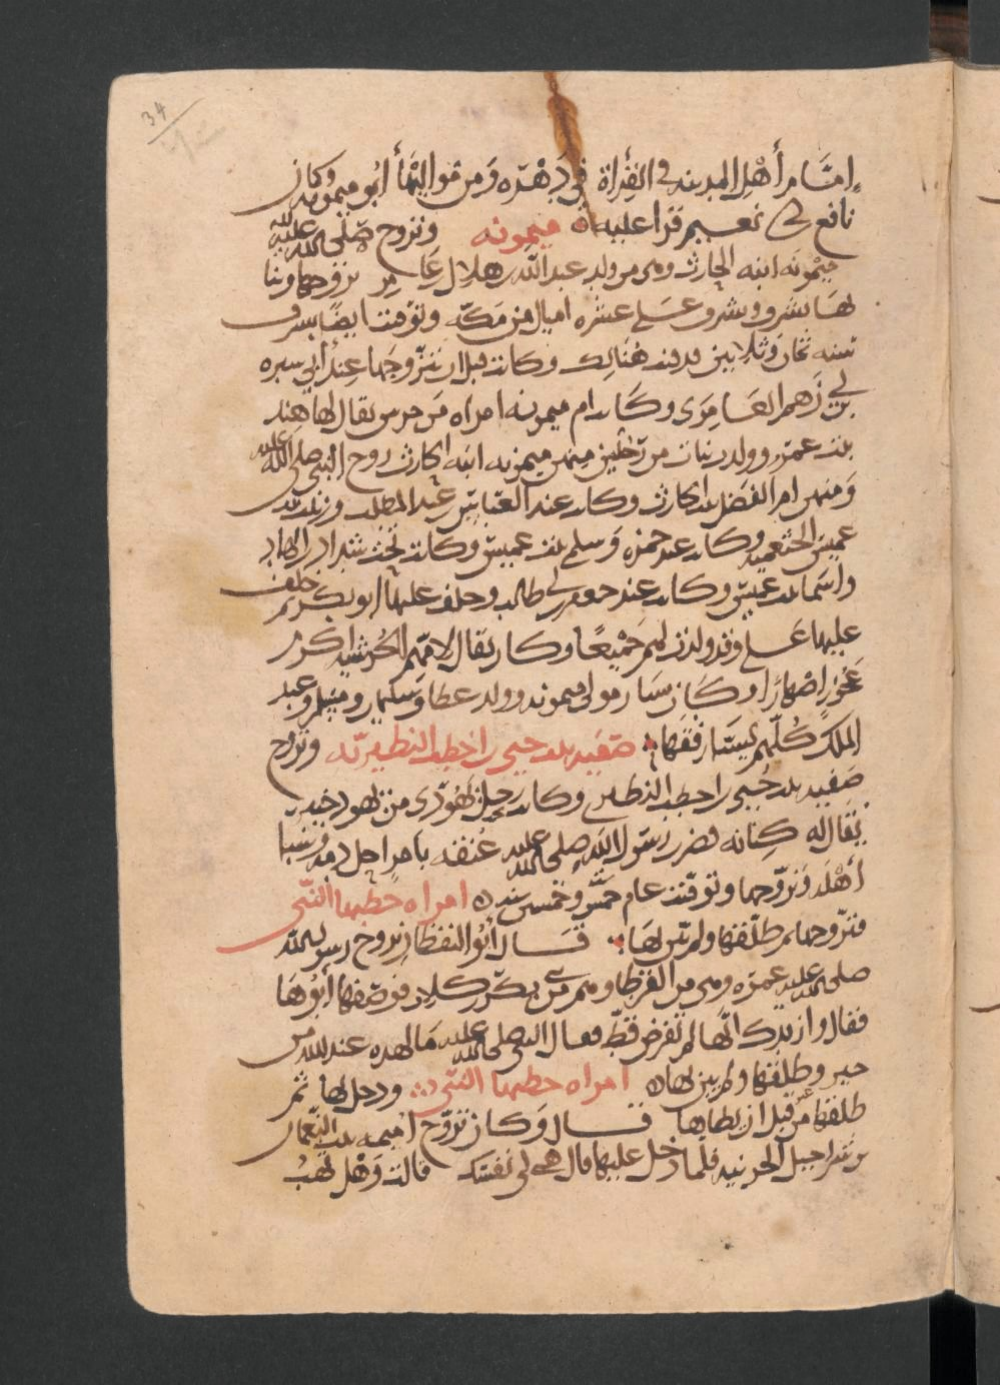 34
إماما من أهل المدينة في القراة في دهره ومن مواليها أبو ميمونه وكان
نافع بن أبي نعيم قرا عليه ميمونه وتزوج صلى الله عليه
ميمونه ابنه الحارث وهي من ولد عبد الله بن هلال بن عامر تزوجها وبنا
لها بسرف وسرف على عشره اميال من مكه وتوفت ايضا بسرف
سنه ثمان وثلاثين فدفنت هنالك وكانت قبل ان يتزوجها عند أبي سبره
بن أبي رهم العامري وكانت ام ميمونه امراه من جرش يقال لها هند
بنت عمرو وولدت بنات من رجلين منهن ميمونه ابنه الحارث زوج النبي صلى الله عليه
ومنهن ام الفضل بنت الحارث وكانت عند العباس بن عبد المطلب وزينب بنت
عميس الخثعميه وكانت عند حمزه وسلمى بنت عميس وكانت تحت شداد بن الهاد
واسما بنت عميس وكانت عند جعفر بن أبي طالب وخلف عليها ابو بكر ثم خلف
عليها علي وقد ولدت لهم جميعا وكان يقال لامهم الجرشيه اكرم
عجوز اصهارا وكان يسار مولى ميمونه وولد عطا وسليمن ومسلم وعبد
الملك كلهم بنو يسار فقها صفيه بنت حيي بن اخطب النظيريه وتزوج
صفيه بنت حيي بن اخطب النظيري وكانت عند رجل يهودي من يهود خيبر
يقال له كنانه فضرب رسول الله صلى الله عليه عنقه بامر احل دمه وسبا
أهله وتزوجها وتوفت عام خمس وخمسين سنه امراه خطبها النبي
فتزوجها ثم طلقها ولم يبن بها قال أبو اليقظان تزوج رسول الله
صلى الله عليه عمره وهي من القرظا وهم من بني بكر بن كلاب فوصفها أبوها
فقال وازيدك انها لم تمرض قط فقال النبي صلى الله عليه ما لهذه عند الله من
خير وطلقها ولم يبن بها امراه خطبها النبي ودخل بها ثم
طلقها من غير قبل ان يطاها قال وكان تزوج اميمه بنت النعمان
بن شراحيل الجونيه فلما دخل عليها قال هبي لي نفسك قالت وهل تهب